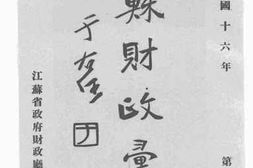 國十六年 第
縣財政彙
于右任
于
江蘇省政府財政廳